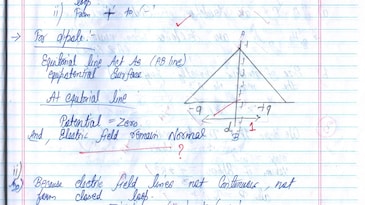 loop
ii) Form + to (-
→ For dipole:-
Equitorial line Act As (AB line)
eqipotential Surface
At eqatorial line
Potential = Zero
And, Electric field remain Normal
?
A
-q
+q
B
1
ii)
Because electric field lines not Continuous, not
form closed loop.